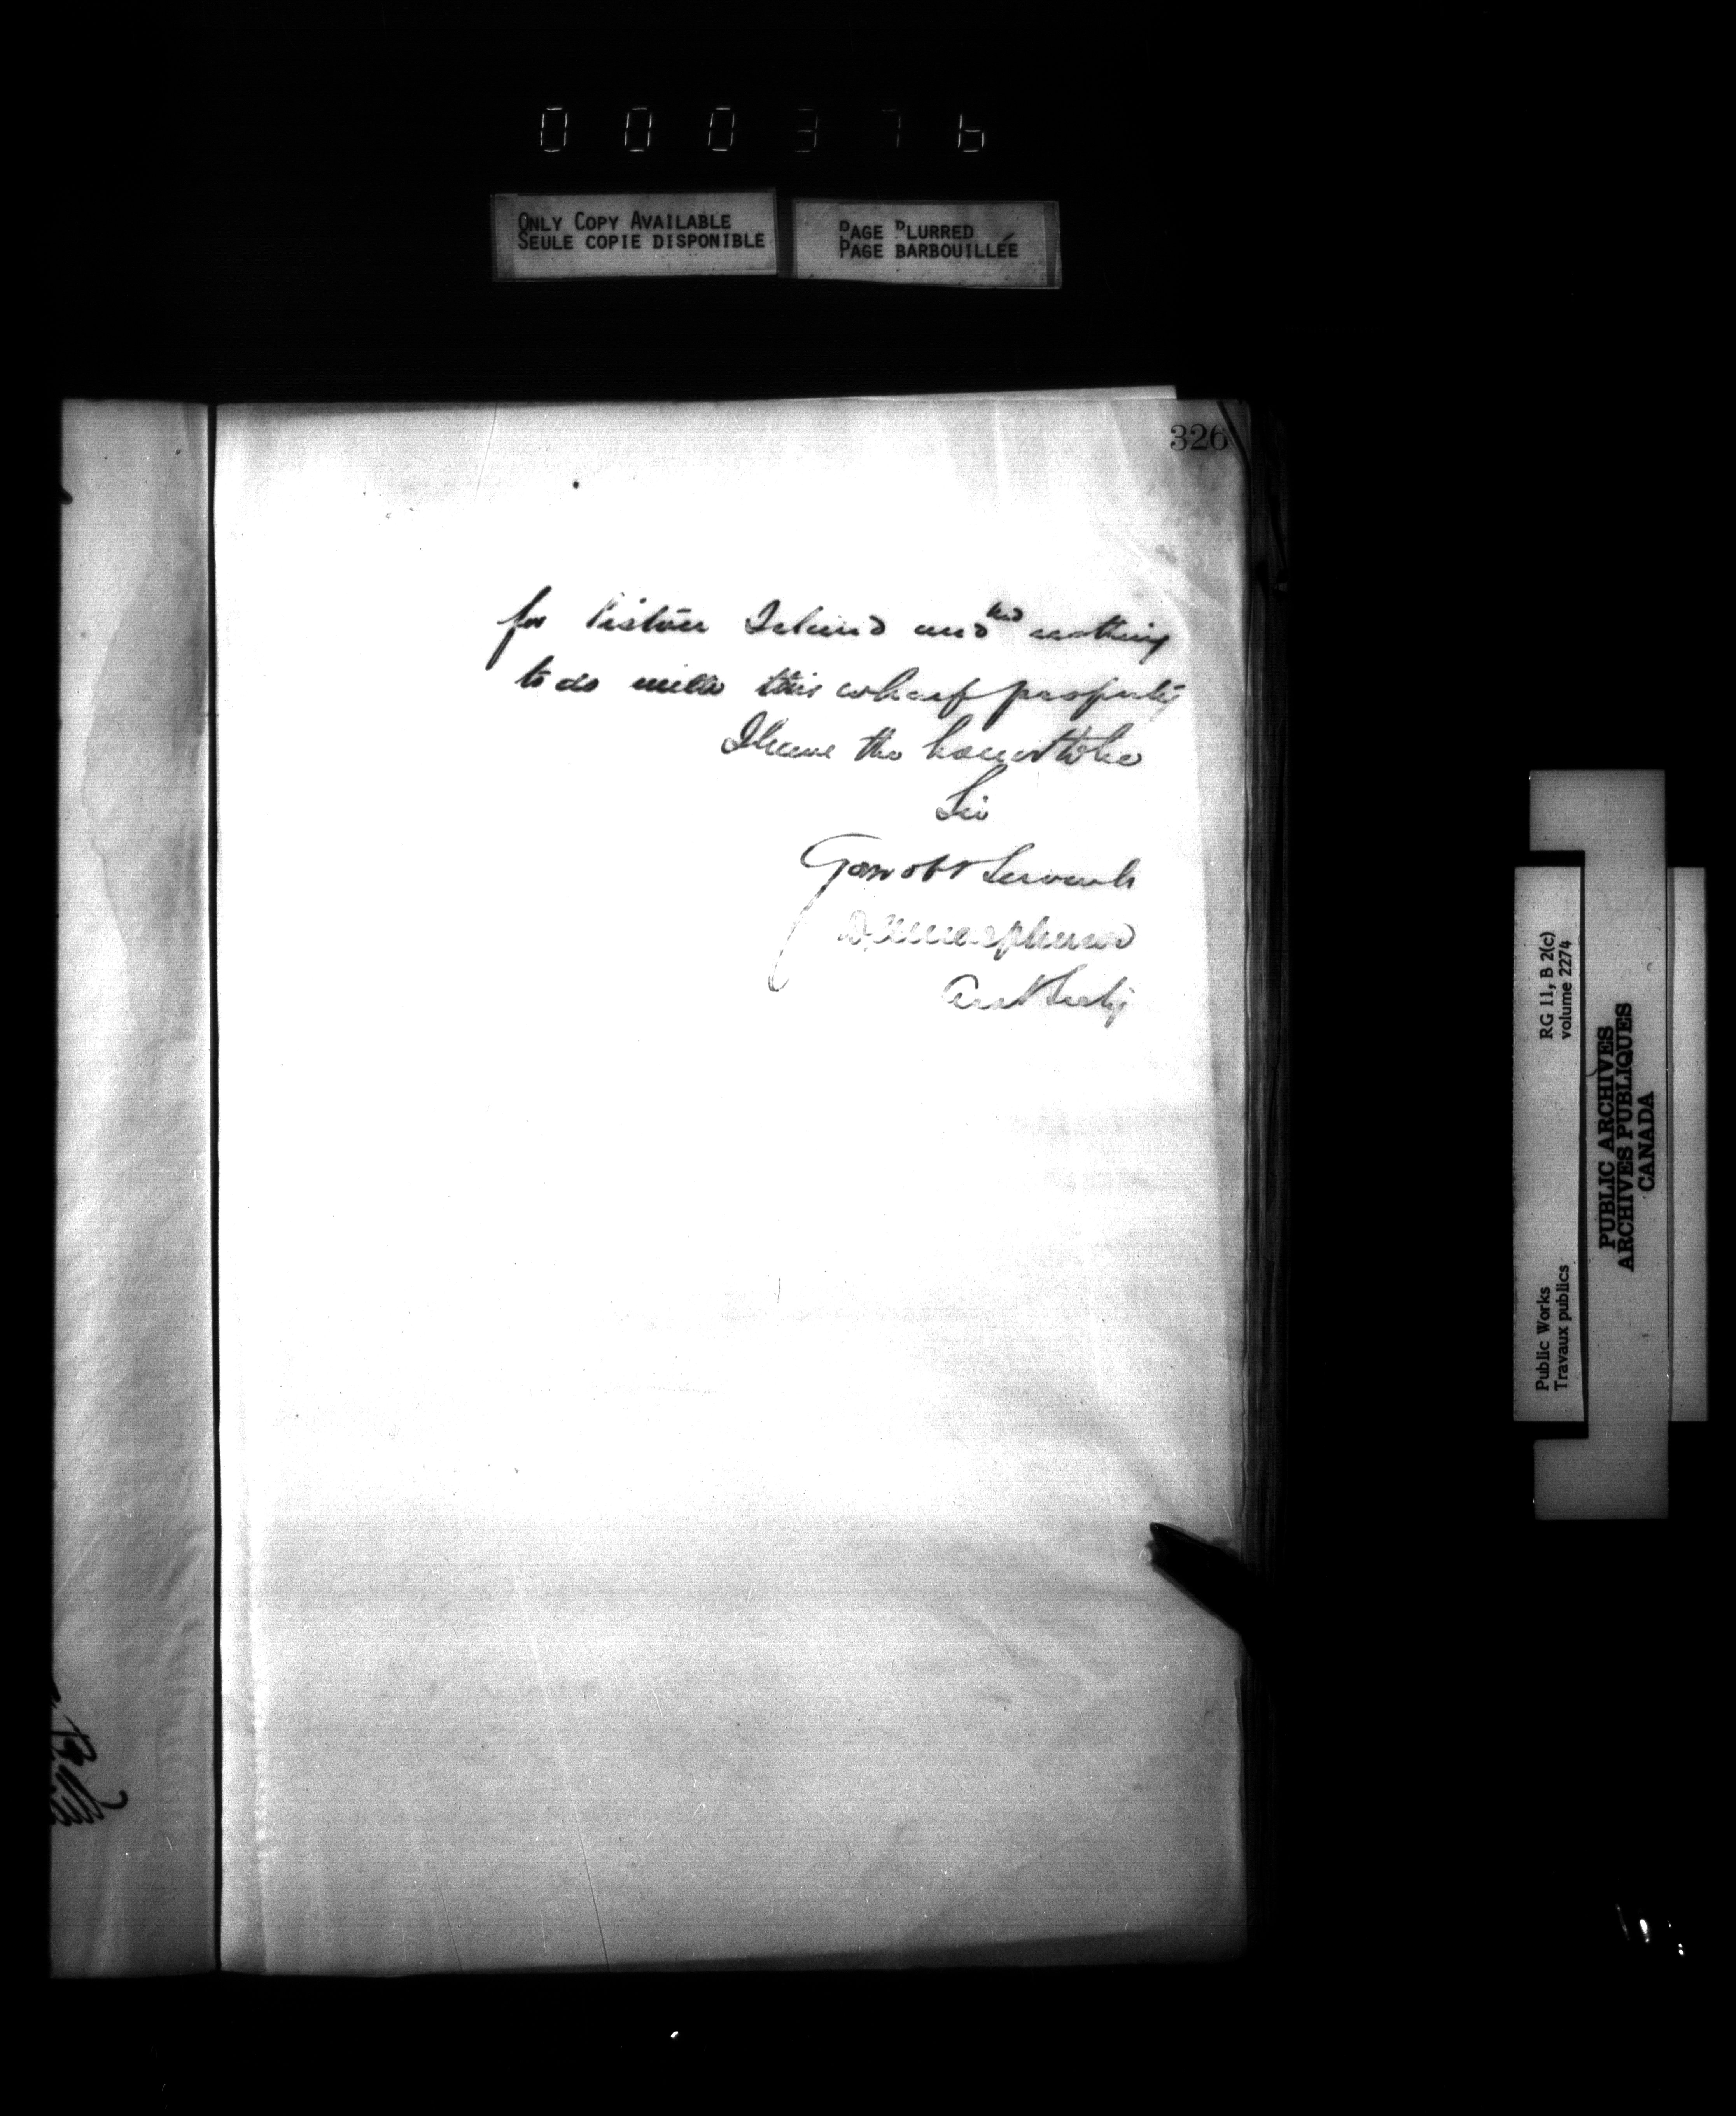 0 0 0 3 7 6
ONLY COPY AVAILABLE
SEULE COPIE DISPONIBLE
PAGE BLURRED
PAGE BARBOUILLÉE
326
for Island and had nothing
to do with this wharf property
I have the honor to be
Sir
Your obt Servant
Public Works
Travaux publics
RG 11, B 2(c)
volume 2274
PUBLIC ARCHIVES
ARCHIVES PUBLIQUES
CANADA